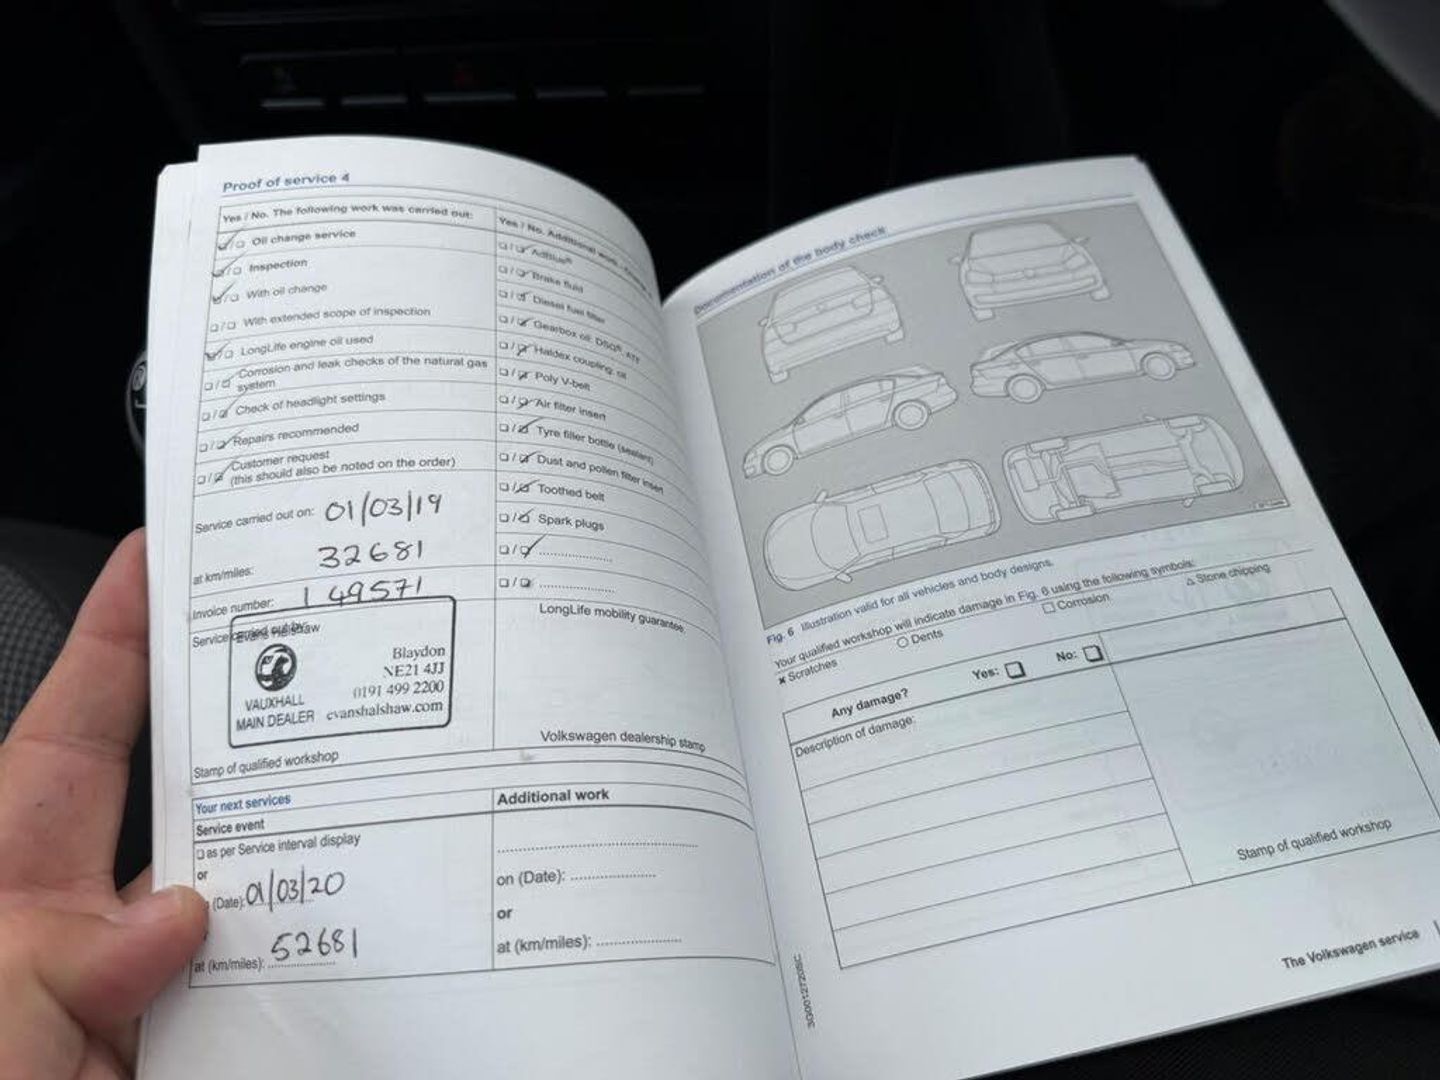 Proof of service 4
Yes / No. The following work was carried out:
☑/☐ Oil change service
☑/☐ Inspection
☑/☐ With oil change
☐/☐ With extended scope of inspection
☑/☐ LongLife engine oil used
☐/☑ Corrosion and leak checks of the natural gas
system
☐/☑ Check of headlight settings
☐/☑ Repairs recommended
☐/☑ Customer request
(this should also be noted on the order)
Service carried out on: 01/03/19
at km/miles: 32681
Invoice number: 149571
Service carried out by:
Evans Halshaw
VAUXHALL
MAIN DEALER
Blaydon
NE21 4JJ
0191 499 2200
evanshalshaw.com
Stamp of qualified workshop
Yes / No. Additional work
☐/☑ AdBlue®
☐/☑ Brake fluid
☐/☑ Diesel fuel filter
☐/☑ Gearbox oil: DSG®, ATF
☐/☑ Haldex coupling: oil
☐/☑ Poly V-belt
☐/☑ Air filter insert
☐/☑ Tyre filler bottle (sealant)
☐/☑ Dust and pollen filter insert
☐/☑ Toothed belt
☐/☑ Spark plugs
☐/☑ ....................
☐/☐ ....................
LongLife mobility guarantee
Volkswagen dealership stamp
Your next services
Service event
☐ as per Service interval display
or
(Date): 01/03/20
at (km/miles): 52681
Additional work
on (Date): ....................
or
at (km/miles): ....................
Documentation of the body check
Fig. 6 Illustration valid for all vehicles and body designs.
Your qualified workshop will indicate damage in Fig. 6 using the following symbols:
✖ Scratches ○ Dents ☐ Corrosion △ Stone chipping
Any damage? Yes: ☐ No: ☐
Description of damage:
Stamp of qualified workshop
The Volkswagen service